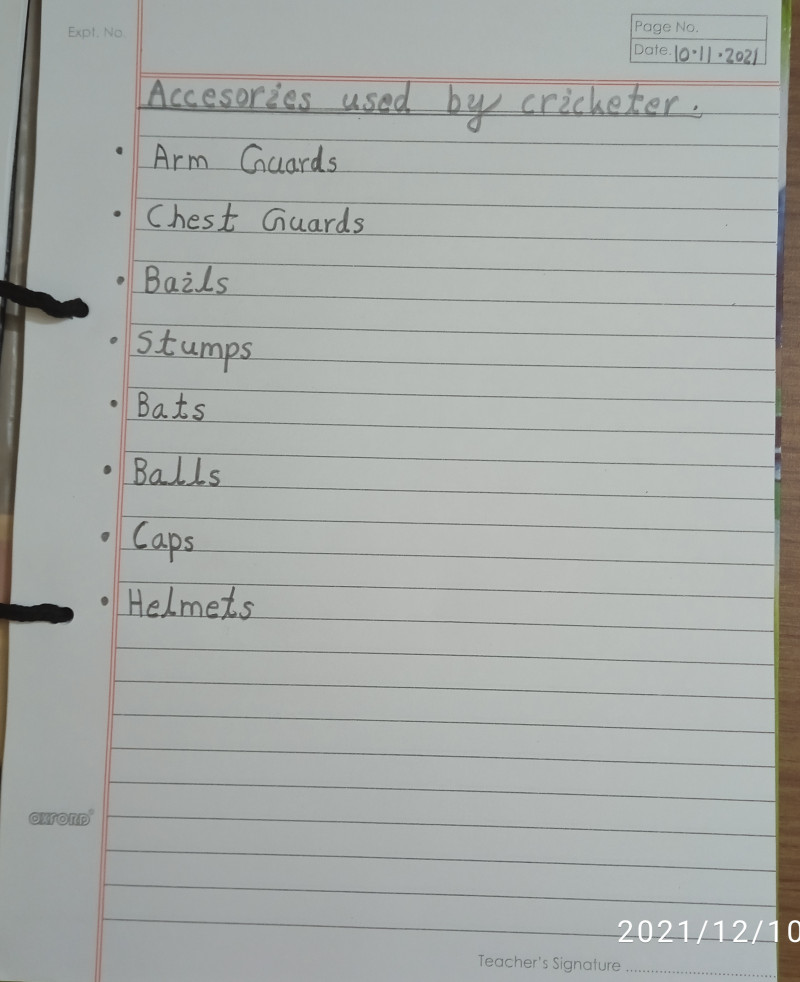 Expt. No.
Page No.
Date. 10.11.2021
Accesories used by cricketer.
• Arm Guards
• Chest Guards
• Bails
• Stumps
• Bats
• Balls
• Caps
• Helmets
OXFORD
2021/12/10
Teacher's Signature